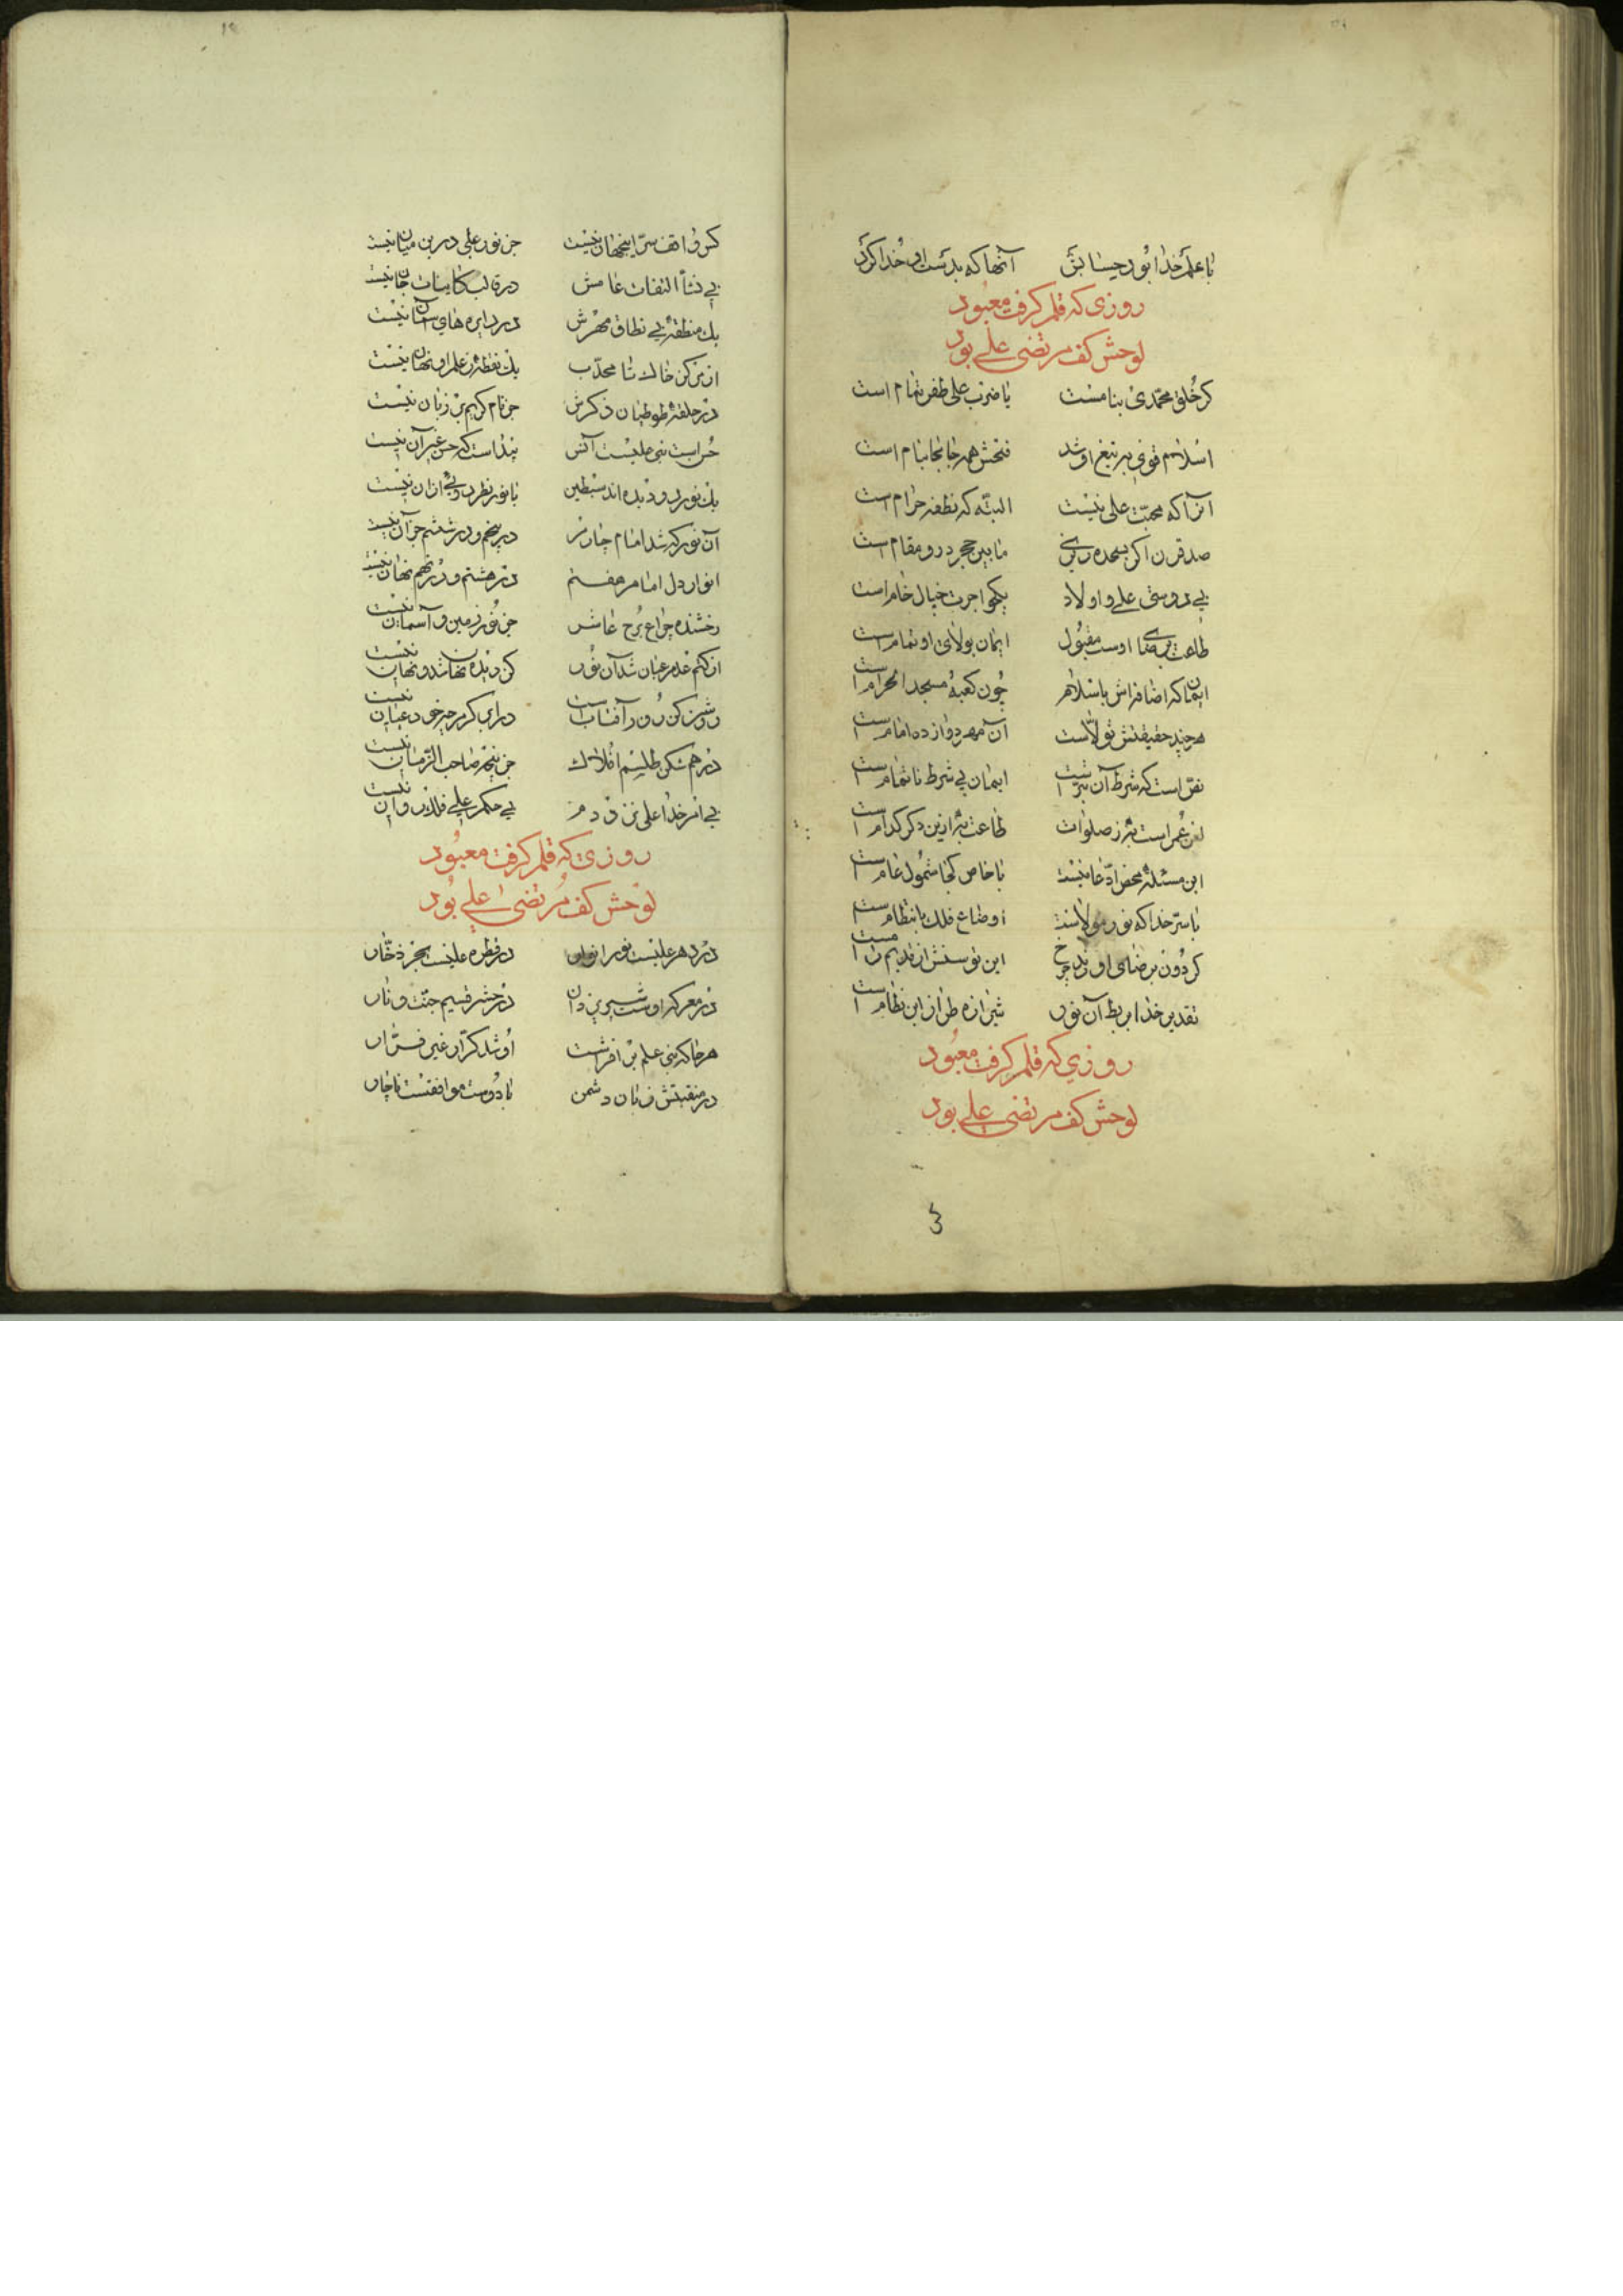 با علم خدا بود حسابش آنها که بدست او خدا کرد
روزی که قلم گرفت معبود
لوحش کف مرتضی علی بود
کر خلق محمدی بنامست با ضرب علی ظفر تمام است
اسلام قوی بر تیغ او شد فتحش همه جا بجا بنام است
آنرا که محبت علی نیست البته که نطفه حرام است
صد قرن اگر بسجده ریزی مابین حجر درو مقام است
بی دوستی علی و اولاد یکجو اجرت خیال خام است
طاعت برضا اوست مقبول ایمان بولای او تمام است
ایمان که اضافه‌اش باسلام چون کعبهٔ مسجد الحرام است
هر چند حقیقتش تولاست آن مهر دوازده امام است
نص است که شرط آن تبراست ایمان بی شرط ناتمام است
لعن عمر است به ز صلوات طاعت به ازین دگر کدام است
این مسئله محض ادعا نیست با خاص کجا شمول عام است
با سر خدا که نور مولاست اوضاع فلک بانتظام است
کردون برضای او زند چرخ این توسنش از قدیم رام است
تقدیر خدا بربط آن نور شیرازه طراز این نظام است
روزی که قلم گرفت معبود
لوحش کف مرتضی علی بود
کس واقف سر اینجهان نیست جز نور علی درین میان نیست
بی نشأ التفات عامش در قالب کاینات جان نیست
یک منطقهٔ بی نطاق مهرش در دایره های آسمان نیست
از مرکز خاک تا محدب یک نقطه ز علم او نهان نیست
در حلقهٔ طوطیان ذکرش جز نام کریم بر زبان نیست
یک نور دو دیده اند سبطین با نور نظر دوئی ازان نیست
آن نور که شد امام چارم در پنجم و در ششم جز آن نیست
انوار دل امام هفتم در هشتم و در نهم نهان نیست
رخشنده چراغ برج عاشر جز نور زمین و آسمان نیست
از کتم عدم عیان شد آن نور کز دیده نهان شد و نهان نیست
روشن کن روز آفتاب است در ابر گرچه خود عیان نیست
در هم شکن طلسم افلاک جز پنجه صاحب الزمان نیست
بی امر خدا علی نزد دم بی حکم علی فلک روان نیست
روزی که قلم گرفت معبود
لوحش کف مرتضی علی بود
در دهر علیست نور انوار در قطره علیست بحر ذخار
در معرکه اوست شیر یزدان در حشر قسیم جنت و نار
هر جا که نبی علم بر افراشت او شد کرار غیر فرار
در منقبتش زبان دشمن با دوست موافقست ناچار